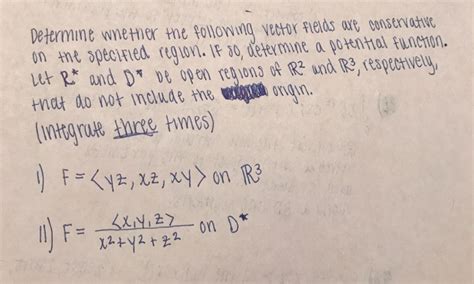 Determine whether the following vector fields are conservative
on the specified region. If so, determine a potential function.
Let R* and D* be open regions of ℝ2 and ℝ3, respectively,
that do not include the origin.
(integrate three times)
I) F = <yz, xz, xy> on ℝ3
II) F = <x,y,z> / x²+y²+z² on D*